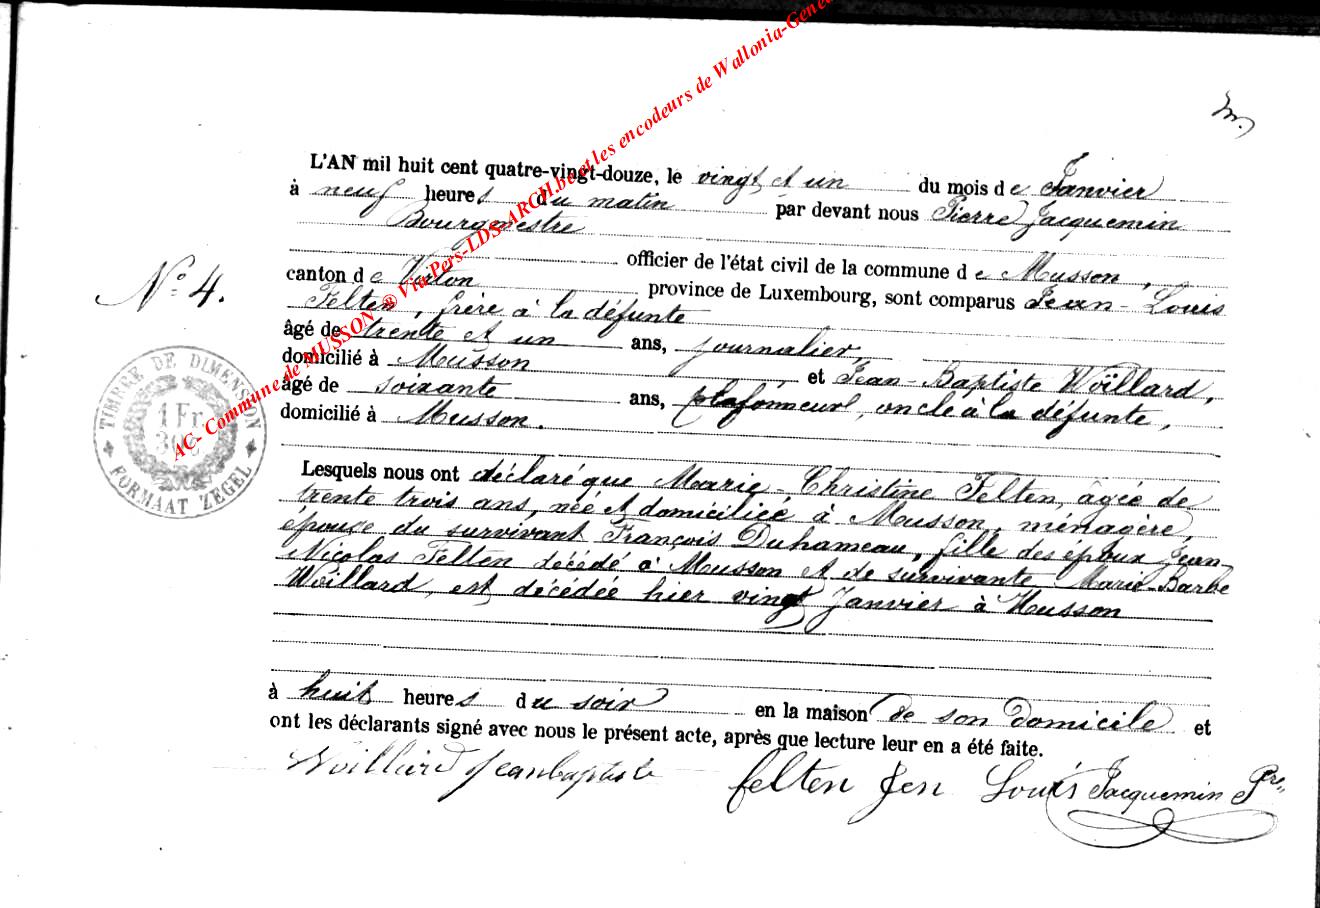 m.
L'AN mil huit cent quatre-vingt-douze, le vingt et un du mois de Janvier
à neuf heures du matin par devant nous Pierre Jacquemin
Bourgmestre
officier de l'état civil de la commune de Musson,
N° 4.
canton de Virton province de Luxembourg, sont comparus Jean-Louis
Felten, frère à la défunte
âgé de trente et un ans, journalier,
domicilié à Musson et Jean-Baptiste Woillard,
âgé de soixante ans, plafonneur, oncle à la défunte,
domicilié à Musson.
TIMBRE DE DIMENSION
1 Fr.
30
FORMAAT ZEGEL
Lesquels nous ont déclaré que Marie-Christine Felten, âgée de
trente trois ans, née et domiciliée à Musson, ménagère,
épouse du survivant François Duhameau, fille des époux Jean-
Nicolas Felten décédé à Musson et de survivante Marie-Barbe
Woillard, est décédée hier vingt Janvier à Musson
à huit heures du soir en la maison de son domicile et
ont les déclarants signé avec nous le présent acte, après que lecture leur en a été faite.
Woillard Jeanbaptiste felten Jen Louis Jacquemin Prre
AC- Commune de MUSSON ® Via Pers-LDS-ARCH.be et les encodeurs de Wallonia-Gene